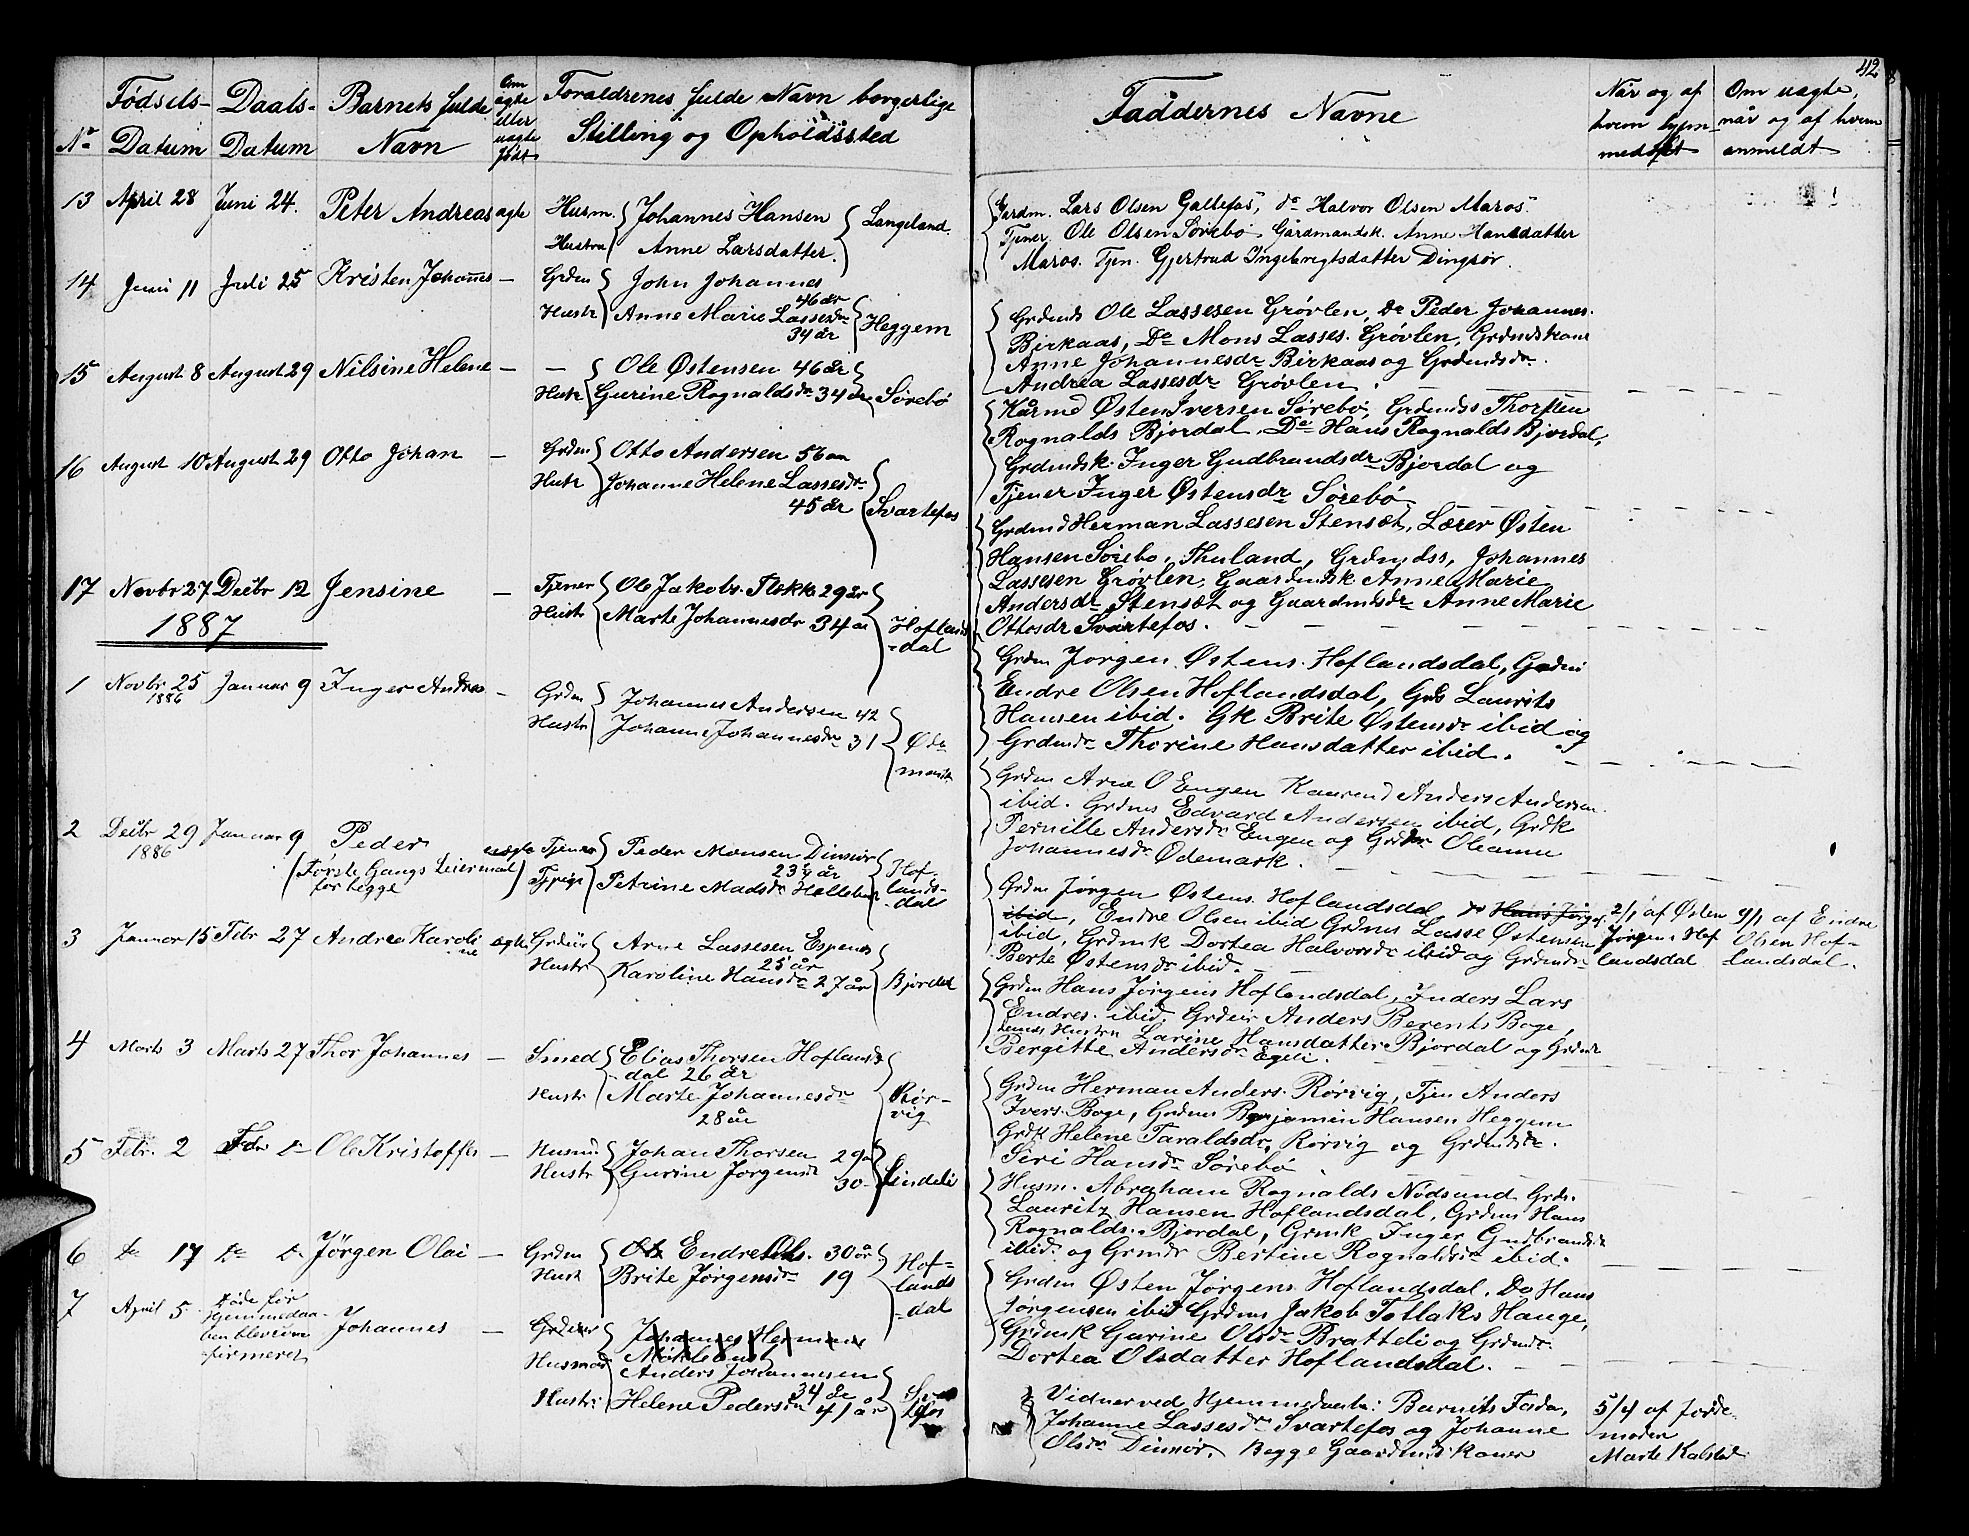 42
No
Fødsels-
Datum
Daabs-
Datum
Barnets fulde
Navn
Om
ægte
eller
uægte
født
Forældrenes fulde Navn borgerlige
Stilling og Opholdssted
Faddernes Navne
Når og af
hvem hjem-
medøbt
Om uægte,
når og af hvem
anmeldt
13 April 28 Juni 24. Peter Andreas ægte
Husm. Johannes Hansen
Hustru Anne Larsdatter.
Langeland.
Gardm. Lars Olsen Gallefos, do Halvor Olsen Maros.
Tjener Ole Olsen Sørebø Gårdmandsk. Anne Hansdatter
Maros. Tjen. Gjertrud Ingebregtsdatter Dingsør.
14 Juni 11 Juli 25 Kristen Johannes —
Grdm John Johannes
46 år
Hustr Anne Marie Lassesdr
34 år
Heggem
Grdmds Ole Lassesen Grøvlen, Do Peder Johannes.
Birkaas, Do Mons Lasses. Grøvlen, Grdmdskone
Anne Johannesdr Birkaas og Grdmdsdr.
Andrea Lassesdr Grøvlen.
15 August 8 August 29 Nilsine Helene —
— Ole Østensen 46 år
Hustr Gurine Rognaldsdr 34 år
Sørebø
Kårmd Østen Iversen Sørebø, Grdmdss Thorsten
Rognalds Bjordal, Do Hans Rognalds Bjordal,
Grdmdsk. Inger Gudbrandsdr Bjordal og
Tjener Inger Østensdr Sørebø
16 August 10 August 29 Otto Johan —
Grdm Otto Andersen 56 aa
Hustr Johanne Helene Lassesdr
45 år
Svartefos
Grdmd Herman Lassesen Stensæt, Lærer Østen
Hansen Sørebø, Thuland, Grdmdss, Johannes
Lassesen Grøvlen, Gaardmdsk Anne Marie
Andersdr Stensæt og Gaardmdsdr Anne Marie
Ottosdr Svartefos.
17 Novbr 27 Decbr 12 Jensine —
Tjener Ole Jakobs. Flekke 29 år
Hustr Marte Johannesdr 34 år
Hoflands
-dal
Grdm Jørgen Østens. Hoflandsdal, Grdm
Endre Olsen Hoflandsdal, Grds Laurits
Hansen ibid. Gk Brite Østensdr ibid og
Grdmdr Thorine Hansdatter ibid.
1887
1 Novbr 25
1886
Januar 9 Inger Andrea —
Grdm Johannes Andersen 42
Hustr Johanne Johannesdr 31
Øde
mark
Grdm Arne O Engen Kaarmd Anders Andersen
ibid. Grdms Edvard Andersen ibid, Grdk
Pernille Andersdr Engen og Grdmdr Oleanna
Johannesdr Ødemark.
2 Decbr 29
1886
Januar 9 Peder
uægte
(Første Gangs Leiermaal)
for begge
Tjener Peder Monsen Dinnør
23½ år
Tjpige Petrine Madsdr Hellebust
Hof-
lands-
dal
Grdm Jørgen Østens Hoflandsdal, do Hans Jørgs.
ibid, Endre Olsen ibid Grdms Lasse Østensen
ibid, Grdmk Dortea Halvorsdr ibid og Grdmdr
Berte Østensdr ibid.
2/1 af Østen
Jørgens Hof
landsdal
9/1 af Endre
Olsen Hof-
landsdal.
3 Januar 15 Febr 27 Andrea Karoli
ne
ægte
Grdeier Arne Lassesen Espenes
25 år
Hustr Karoline Hansdr 27 år
Bjordal
Grdm Hans Jørgens Hoflandsdal, Inders Lars
Endres. ibid. Grdeier Anders Berents Boge,
dennes Hustru Larine Hansdatter Bjordal og Grdmdr
Bergitte Andersdr Egeli.
4 Marts 3 Marts 27 Thor Johannes —
Smed Elias Thorsen Hoflands
dal 26 år
Hustr Marte Johannesdr
28 år
Rør-
vig
Grdm Herman Anders. Rørvig, Tjen Anders
Ivers. Boge, Grdms Benjamin Hansen Heggem
Grdk Helene Taraldsdr, Rørvig og Grdmdsdr.
Siri Hansdr Sørebø.
5 Febr. 2 Febr do Ole Kristoffer —
Husmd Johan Thorsen 29 a
Hustr Gurine Jørgensdr
30
Lindeli
Husm. Abraham Rognalds Nødsund Grds.
Lauritz Hansen Hoflandsdal, Grdms Hans
Rognalds. Bjordal, Grmk Inger Gudbrandsdr
ibid. og Grmdr Bertine Rognaldsdr ibid.
6 do 17 do do Jörgen Olai —
Grdm Endre Ols. 30 år
Hustr Brite Jørgensdr 19
Hof-
lands
-dal
Grdm Østen Jørgens. Hoflandsdal, Do Hans
Jørgensen ibid Grdms Jakob Tollaks Hauge,
Grdmk Gurine Olsdr Bratteli og Grdmdr.
Dortea Olsdatter Hoflandsdal.
7 April 5 Døde før
Hjemmedaa-
ben blev con-
firmeret
Johannes —
Grdeier Johannes Hermans
Husmd Anders Johannesen
34 år
Hustr Helene Pedersdr 41 år
Vidner ved Hjemmedaaben: Barnets Fader,
Johanne Lassesdr Svartefos og Johanne
Olsdr Dinnør, Begge Gaardmds Koner
5/4 af Jorde-
moder
Marte Kalstad